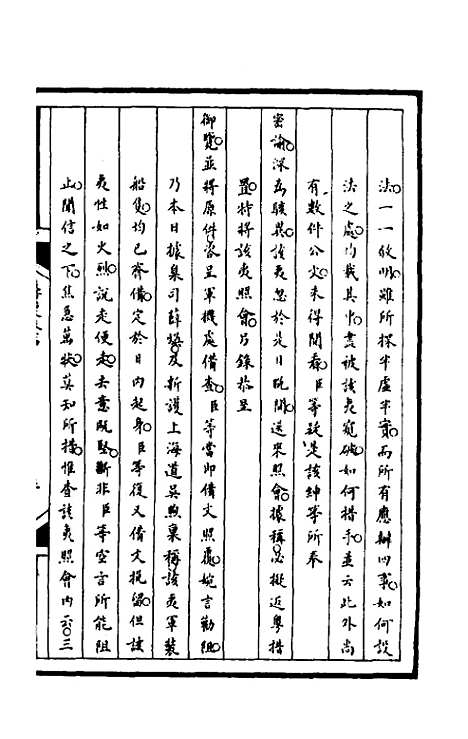 法一一敘明雖所探半虛半實而所有應辦四事如何設
法之處均載其中盡被該夷窺破如何措手並云此外尚
有數件公文未得開看臣等疑是該紳等所奉
密諭深為駭異該夷忽於是日既聞送來照會據稱必擬近粵措
置特將該夷照會另錄恭呈
御覽並將原件咨呈軍機處備查臣等當即備文照覆婉言勸阻
乃本日據臬司薛煥及新護上海道吳煦稟稱該夷軍裝
船隻均已齊備定於日內起身臣等復又備文挽留但該
夷性如火烈說走便走去意既堅斷非臣等空言所能阻
止聞信之下焦急萬狀莫知所措惟查該夷照會內云三